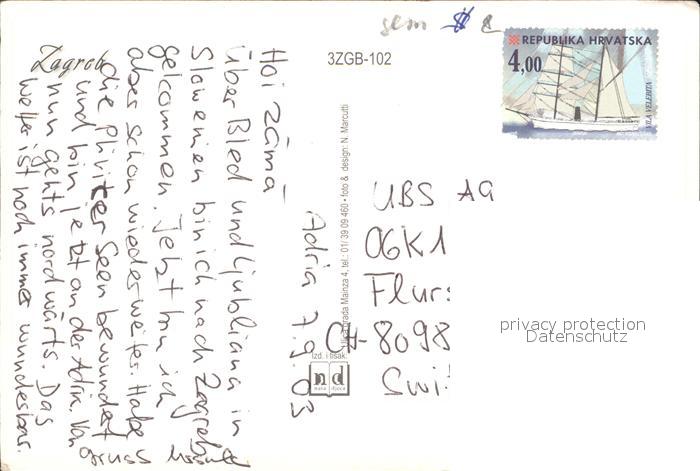 Zagreb
Hoi Zämä
Über Bled und Ljubliana in
Slowenien bin ich nach Zagreb
gekommen. Jetzt bin ich
aber schon wieder weiter. Habe
die Plivicer Seen bewundert
und bin jetzt an der Adria. Von
nun gehts nordwärts. Das
Wetter ist noch immer wunderbar.
Gruss
Adria 7.9.03
3ZGB-102
Mainza 4, tel.: 01/ 39 09 460 • foto & design: N. Marcutti
Izd. i tisak:
nd
REPUBLIKA HRVATSKA
4,00
VILA VELEBITA
UBS AG
O6K1
Flur:
CH-8098
Swi
privacy protection
Datenschutz